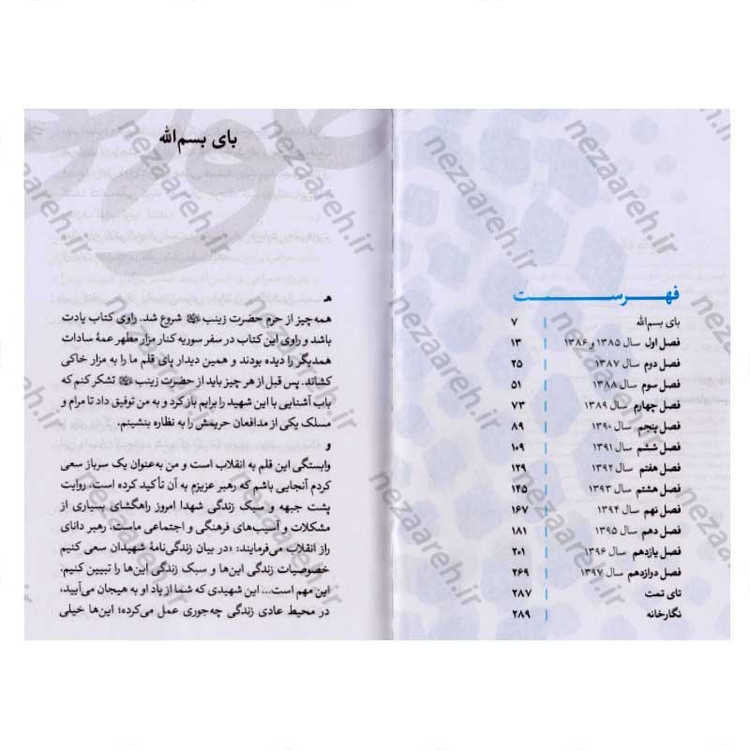 فهرست
بای بسم‌الله ۷
فصل اول سال ۱۳۸۵ و ۱۳۸۶ ۱۳
فصل دوم سال ۱۳۸۷ ۲۵
فصل سوم سال ۱۳۸۸ ۵۱
فصل چهارم سال ۱۳۸۹ ۷۳
فصل پنجم سال ۱۳۹۰ ۸۹
فصل ششم سال ۱۳۹۱ ۱۰۹
فصل هفتم سال ۱۳۹۲ ۱۲۹
فصل هشتم سال ۱۳۹۳ ۱۴۵
فصل نهم سال ۱۳۹۴ ۱۶۷
فصل دهم سال ۱۳۹۵ ۱۸۱
فصل یازدهم سال ۱۳۹۶ ۲۰۱
فصل دوازدهم سال ۱۳۹۷ ۲۶۹
تای تمت ۲۸۷
نگارخانه ۲۸۹
بای بسم‌الله
هـ
همه‌چیز از حرم حضرت زینب شروع شد. راوی کتاب یادت
باشد و راوی این کتاب در سفر سوریه کنار مزار مطهر عمهٔ سادات
همدیگر را دیده بودند و همین دیدار پای قلم ما را به مزار خاکی
کشاند. پس قبل از هر چیز باید از حضرت زینب تشکر کنم که
باب آشنایی با این شهید را برایم باز کرد و به من توفیق داد تا مرام و
مسلک یکی از مدافعان حریمش را به نظاره بنشینم.
و
وابستگی این قلم به انقلاب است و من به‌عنوان یک سرباز سعی
کردم آنجایی باشم که رهبر عزیزم به آن تأکید کرده است. روایت
پشت جبهه و سبک زندگی شهدا امروز راهگشای بسیاری از
مشکلات و آسیب‌های فرهنگی و اجتماعی ماست. رهبر دانای
راز انقلاب می‌فرمایند: «در بیان زندگی‌نامهٔ شهیدان سعی کنیم
خصوصیات زندگی این‌ها و سبک زندگی این‌ها را تبیین کنیم.
این مهم است... این شهیدی که شما از یاد او به هیجان می‌آیید،
در محیط عادی زندگی چه‌جوری عمل می‌کرده؛ این‌ها خیلی
nezaareh.ir
nezaareh.ir
nezaareh.ir
nezaareh.ir
nezaareh.ir
nezaareh.ir
nezaareh.ir
nezaareh.ir
nezaareh.ir